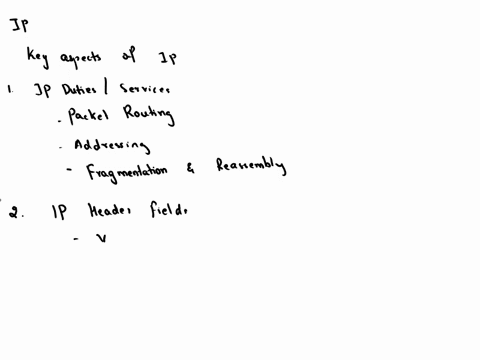 IP
Key aspects of IP
1. IP Duties / Services
- Packet Routing
- Addressing
- Fragmentation & Reassembly
2. IP Header fields
- V